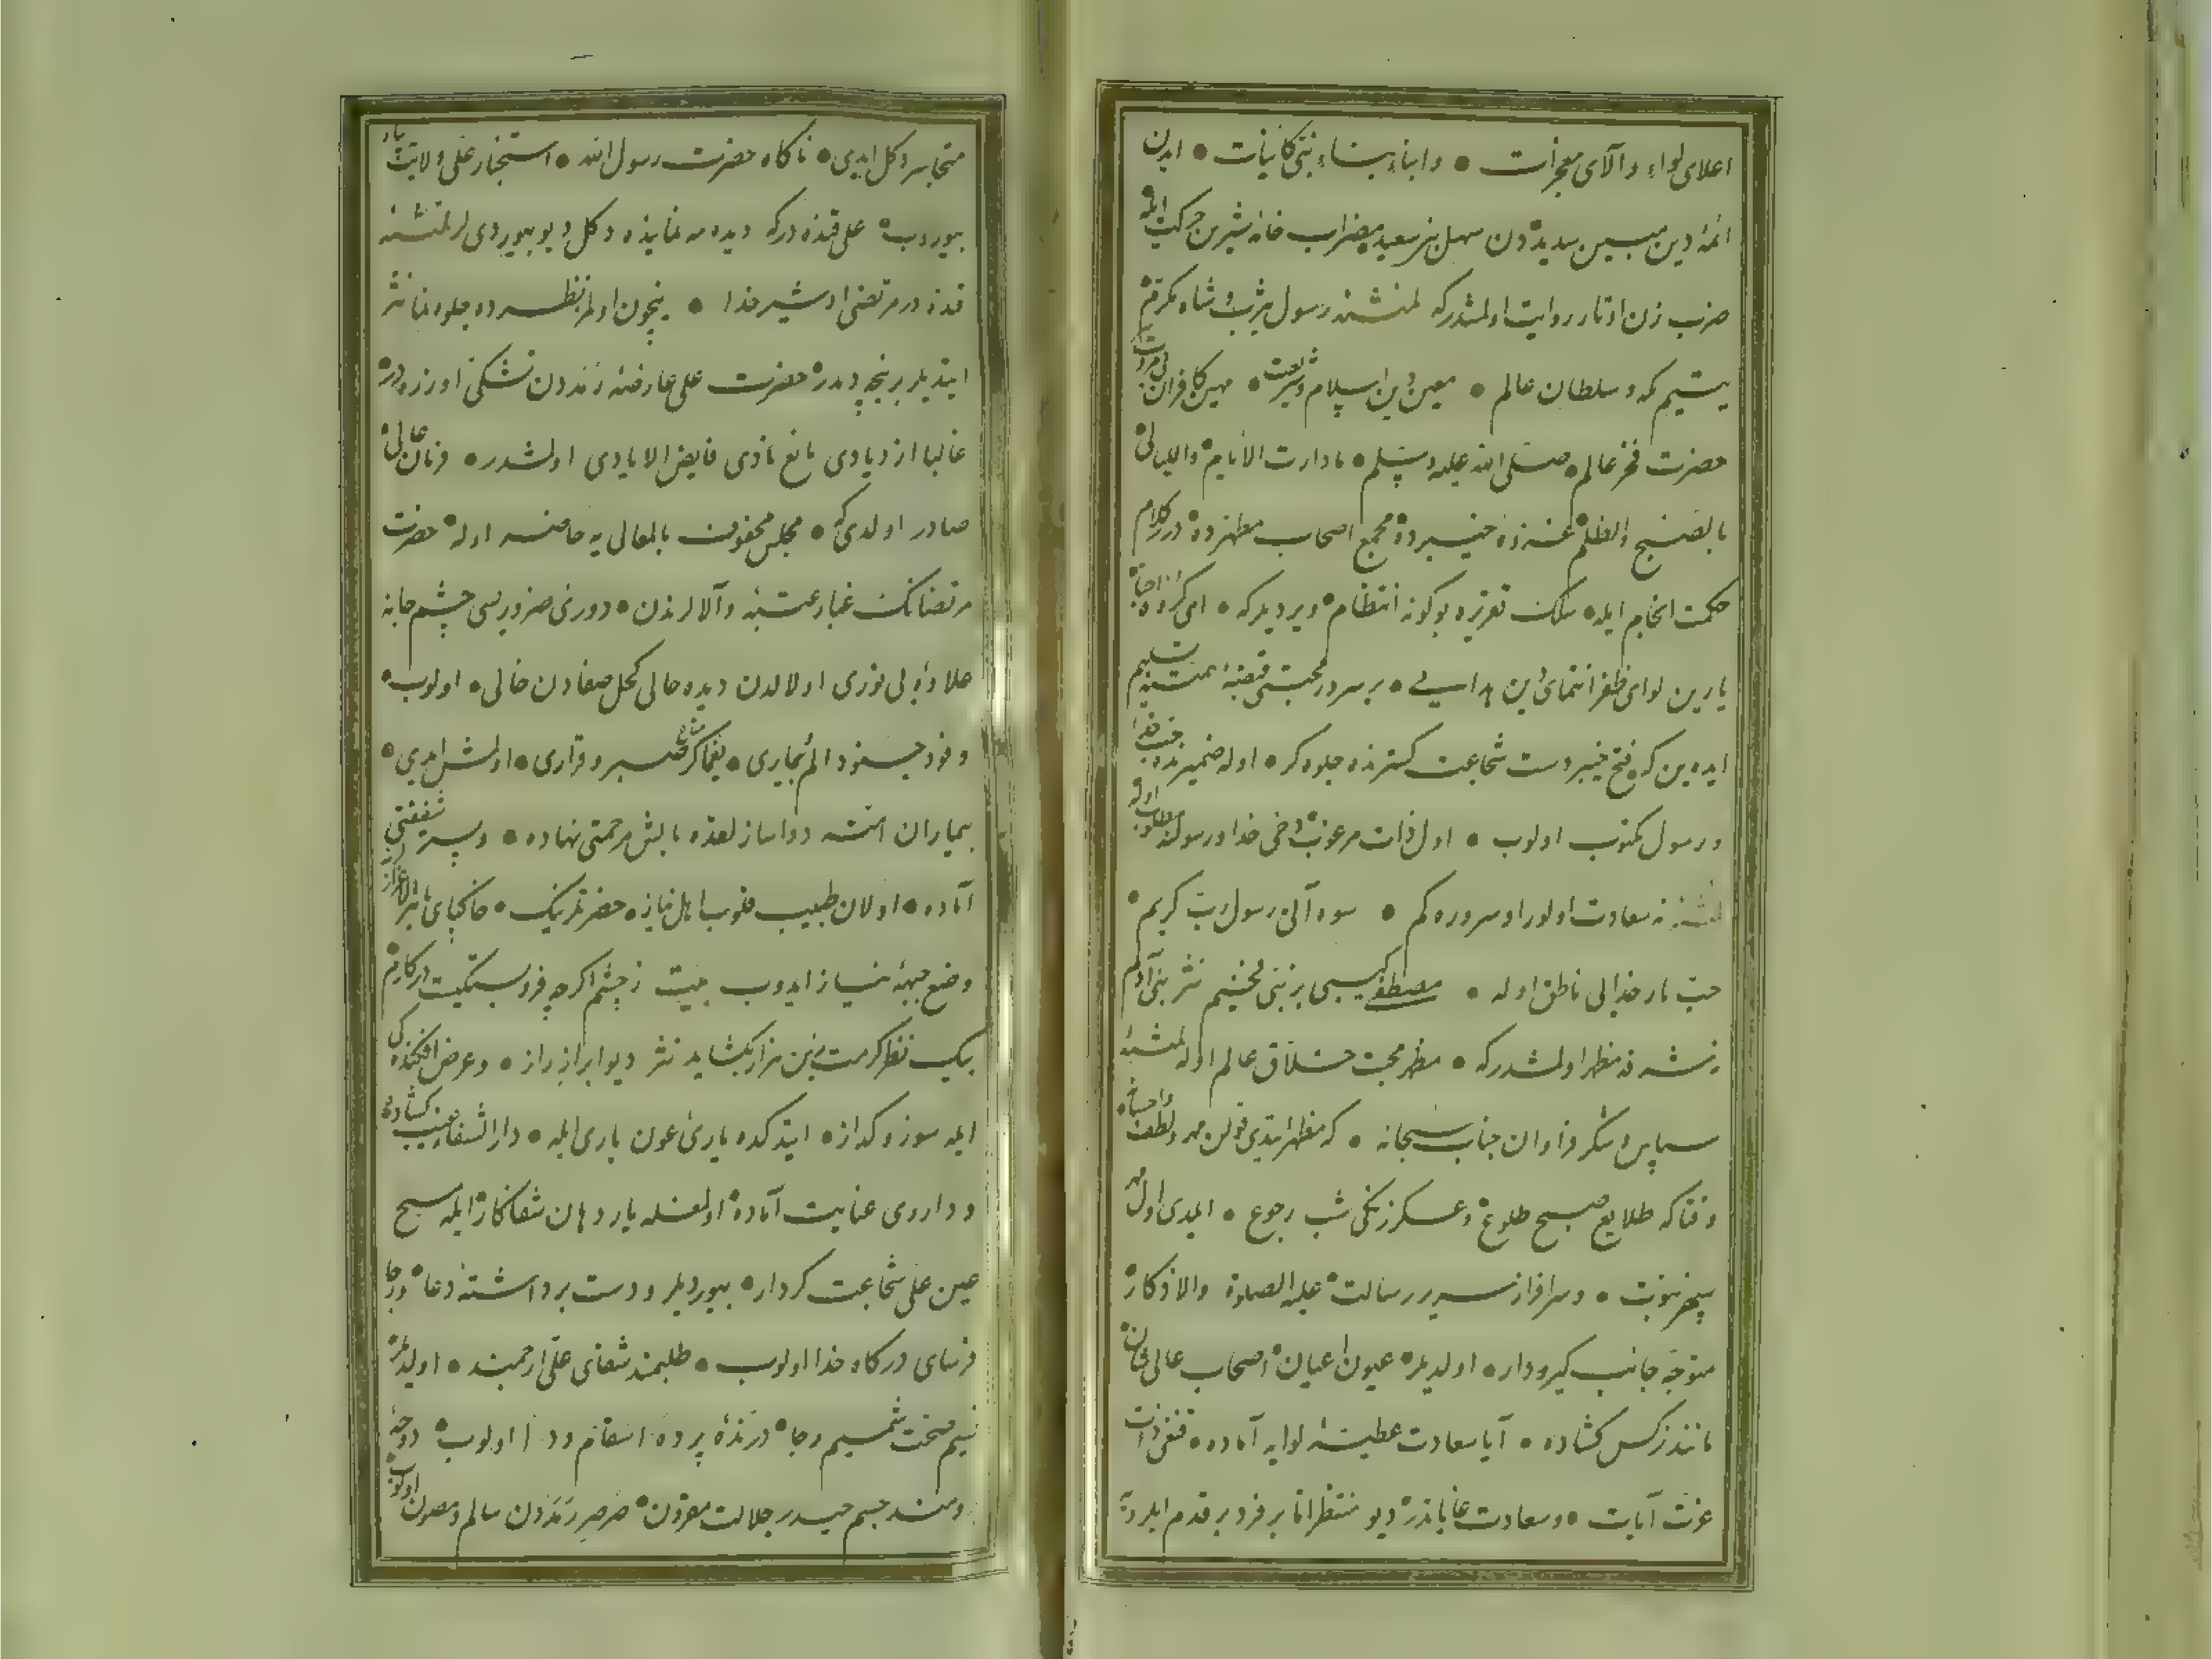 اعلای لواء و آلای معجزات • و ابناء بناء نبئ کائنات • ایدن
ائمۀ دین مبین سدیددن سهل بن سعید مضراب خانه شیرین حرکت ایله
ضرب زن اوتار روایت اولمشدرکه لمنشئه رسول یثرب و شاه مکرم
یتیم مکه و سلطان عالم • معین دین اسلام و شریعت • مهین کافران
حضرت فخر عالم صلی الله علیه وسلم • مادارت الایام واللیالی
غزوۀ خیبرده مجمع اصحاب مطهرده درر کلام
حکمت انجام ایله سلک تقریره بوکونه انتظام ویردیلرکه • ای کروه
یارین لوای ظفر انتمای دین • بر سرور محبتی قبضۀ همتنه تسلیم
ایده‌ین که فتح خیبر دست شجاعت کسترنده جلوه‌کر • اوله ضمیرنده حب خدا
و رسول مکتوب اولوب • اول ذات مرغوب دخی خدا و رسولنه مطلوب اوله
لمنشئه نه سعادت اولور او سروره کم • سوه آنی رسول رب کریم
حب بار خدایی ناطق اوله • مصطفی کبی بر نبئ فخیم نثر بنی آدم
نه شرفه مظهر اولمشدرکه • مظهر محبت خلاق عالم اوله لمنشئه
سپاس و شکر فراوان جناب سبحانه • که مظهر ایتدی قولن مهر و لطف و احسانه
وقتاکه طلایع صبح طلوع و عسکر زنکی شب رجوع • ایلدی اول مهر
سپهر نبوت • و سرافراز سریر رسالت علیه الصلوة والاذکار
متوجه جانب کیرودار • اولدیلر عیون اعیان اصحاب عالی شان
مانند نرکس کشاده • آیا سعادت عطیۀ لوایه آماده • قنغی ذات
عزت آیات • و سعادت غایاتدر دیو منتظرانا بر فرد بر قدم ایلرویه
متجاسر دکل ایدی • ناکاه حضرت رسول الله • استخبار علی ولایت‌پناه
بیوروب علی قنده درکه دیده‌مه نماینده دکل دیو بیوردیلر لمنشئه
قنده در مرتضی او شیر خدا • نیچون اولمز نظرده جلوه‌نما نثر
ایتدیلر بر نیچه دمدر حضرت علی عارضۀ رمددن تشکی اوزره‌در
غالبا ازدیادی مانع نادی فایض الایادی اولمشدر • فرمان عالی
صادر اولدی که • مجلس محفوف بالمعالی یه حاضر اوله حضرت
مرتضانک غبار عتبۀ والالرندن • دورئ ضروریسی چشم جانه
جلا و بی نوری اولالدن دیده حالی کحل صفادن خالی • اولوب
وفود جنود الم بیماری • یغماکر متاع صبر و قراری • اولمش ایدی
بیماران امته دواساز لغنده بالش مرحمتی نهاده • و شفقتی
آماده • اولان طبیب قلوب اهل نیاز • حضرتلرینک • خاکپای
وضع جبهۀ نیاز ایدوب بیت ز چشم اکرچه فروبستکیست در کارم
بیک نظر کرمت زین هزار بکشاید نثر دیو ابراز راز • و عرض افکنده‌کی
ایله سوز و کداز • ایتدکده یارئ عون باری ایله • دارالشفاء غیب کشاده
و داروی عنایت آماده اولمغله یار دهان شفاکار ایله مسح
عین علی شجاعت کردار • بیوردیلر و دست برداشتۀ دعا و رجا
فرسای درکاه خدا اولوب • طلبمند شفای علی ارجمند • اولدیلر
نسیم صحت شمیم رجا • درندۀ پردۀ اسقام و درد اولوب • دوحۀ
جسم حیدر جلالت مقرون • صرصر رمددن سالم و مصون اولوب